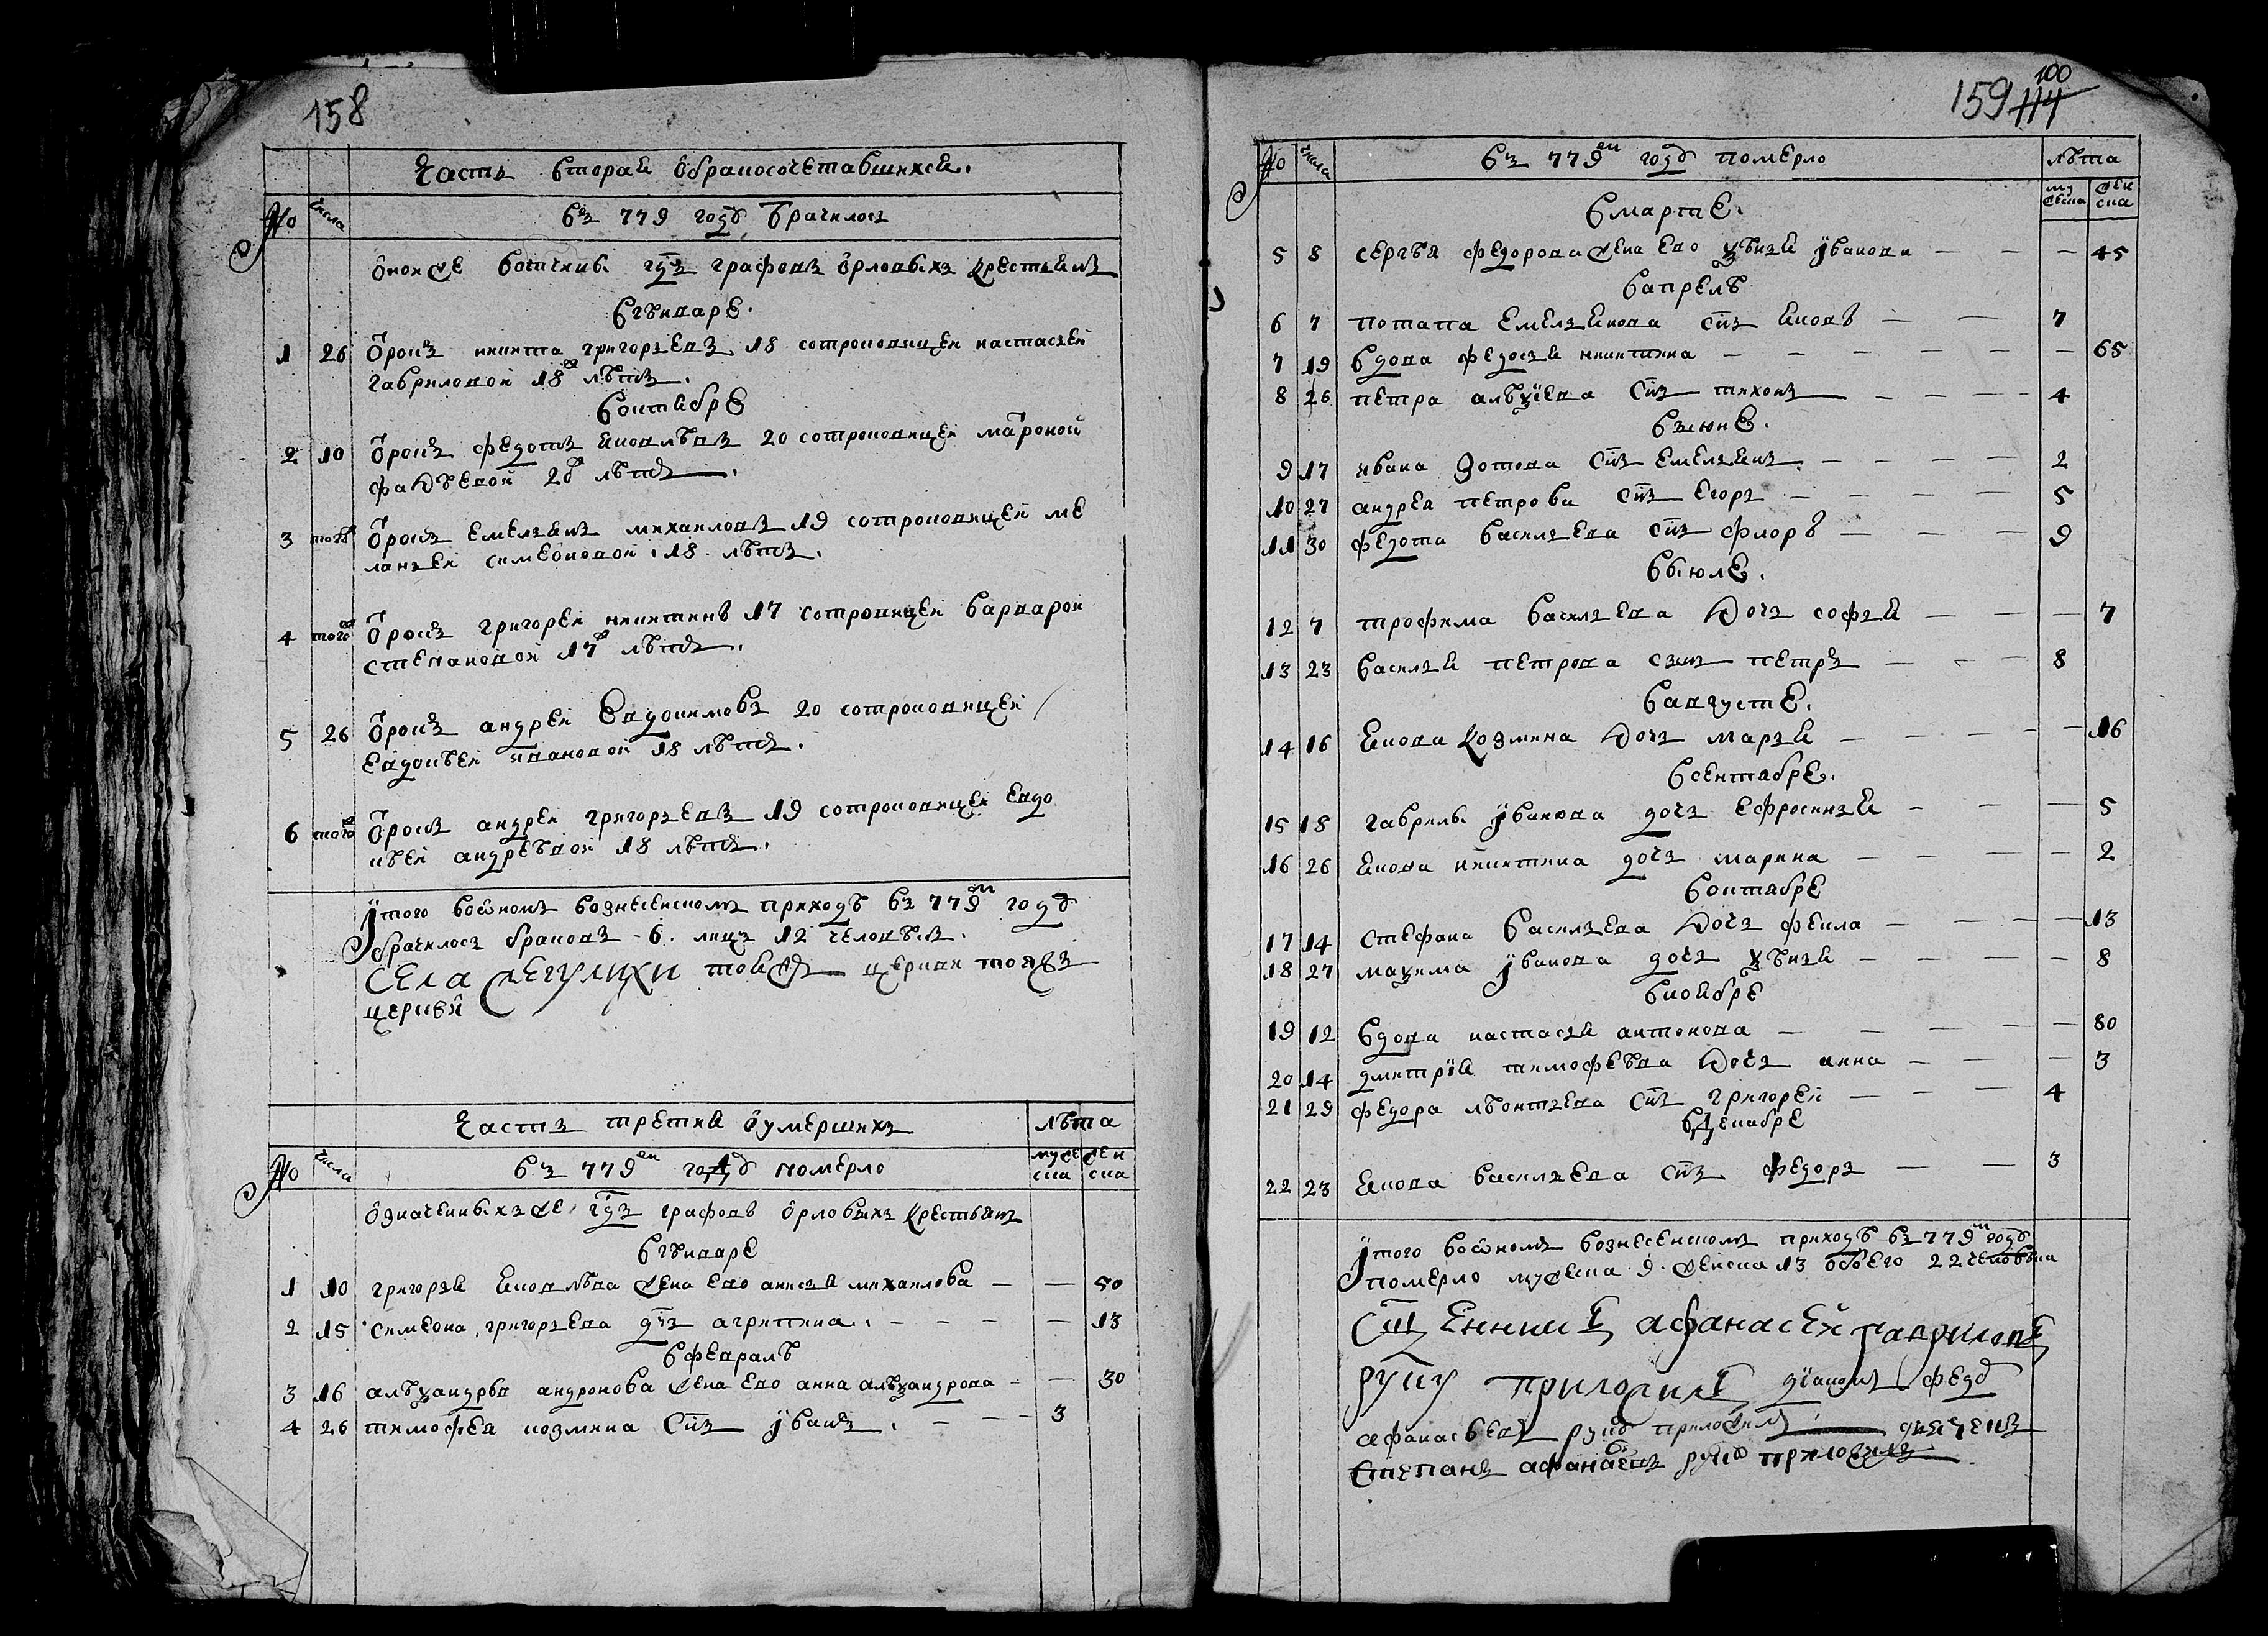 158
Часть вторая о бракосочетавшихся.
No числа въ 779 году Брачилось
оной же вотчины гдъ графовъ орловыхъ крестьянъ
в генваре.
1 26 отрокъ никита григорьевъ 18 сотроковицеи настасьей
гавриловой 18 лѣтъ.
воктябре
2 10 отрокъ федотъ яковлѣвъ 20 сотроковицеи матроной
фадѣевой 20 лѣтъ.
3 того отрокъ емельянъ михаиловъ 19 сотроковицей ме
ланьеи симеоновой 18 лѣтъ.
4 того отрокъ григореи никитинъ 17 сотроковицеи варварой
степановой 17 лѣтъ.
5 26 отрокъ андреи Евдокимовъ 20 сотроковицеи
Евдокѣеи ивановой 18 лѣтъ.
6 того отрокъ андреи григорьевъ 19 сотроковицеи Евдо
кѣеи андрѣевой 18 лѣтъ.
Итого во оном вознесенском приходѣ въ 779м году
брачилось браковъ 6. лицъ 12 человѣкъ.
села жегулихи тояжъ церкви тояжъ
церкви
Часть третия о умершихъ лѣта
No числа въ 779ем году померло мужеска женска
означенныхже гдъ графовъ орловыхъ крестьянъ
в генваре
1 10 григорья яковлѣва жена ево анисья михаилова — — 50
2 15 симеона григорьева дчь агрипина — — — — 13
в февралѣ
3 16 алѣѯандрѣ андронова жена ево анна алѣѯандрова — — 30
4 26 тимофея козмина снъ иванъ — — — 3
159 114 100
No числа въ 779ем году померло лѣта
мужеска женска
в марте.
5 8 сергѣя федорова жена ево ѯѣнья иванова — — — 45
в апрелѣ
6 7 потапа емельянова снъ яковъ — — 7
7 19 вдова федосья никитина — — — — — — 65
8 26 петра алѣѯіева снъ тихонъ — — — 4
в июне.
9 17 ивана зотова снъ емельянъ — — — — 2
10 27 андрея петрова снъ егоръ — — — — 5
11 30 федота васильева снъ флоръ — — — 9
в июле.
12 7 трофима васильева дочь софья — — — 7
13 23 василья петрова сынъ петръ — — — 8
в августе.
14 16 якова козмина дочь марья — — — — — 16
в сентябре.
15 18 гаврилы иванова дочь ефросинья — — — 5
16 26 якова никитина дочь марина — — — — 2
воктябре
17 14 стефана васильева дочь фекла — — — — 13
18 27 маѯима иванова дочь ѯѣнья — — — — 8
в ноябре
19 12 вдова настасья антонова — — — — — 80
20 14 дмитрія тимофѣева дочь анна — — — 3
21 29 федора лѣонтьева снъ григореи — — — 4
в декабре
22 23 якова васильева снъ федоръ — — 3
Итого во оном вознесенском приходѣ въ 779м году
померло мужеска 9. женска 13 обоего 22 человѣка
Сщенникъ афанасеи гавриловъ
руку приложилъ дїаконъ федо
афанасьевъ руку приложилъ дьячекъ
степанъ афанасьевъ руку приложилъ